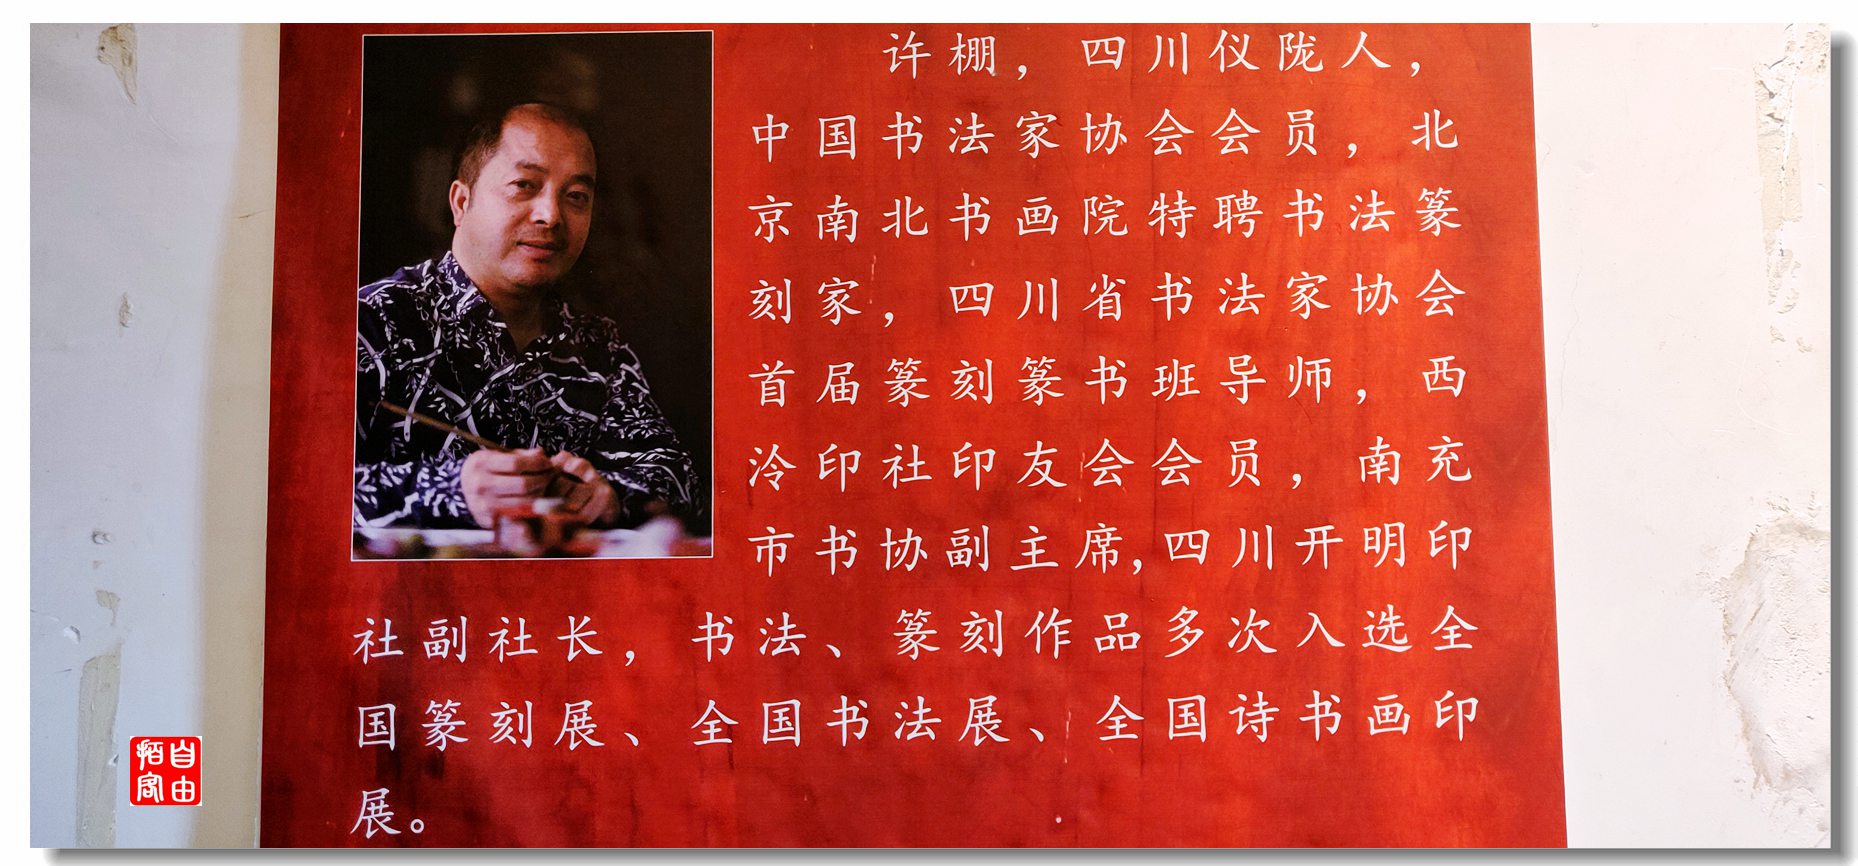 许棚，四川仪陇人，
中国书法家协会会员，北
京南北书画院特聘书法篆
刻家，四川省书法家协会
首届篆刻篆书班导师，西
泠印社印友会会员，南充
市书协副主席,四川开明印
社副社长，书法、篆刻作品多次入选全
国篆刻展、全国书法展、全国诗书画印
展。
自由
拍客